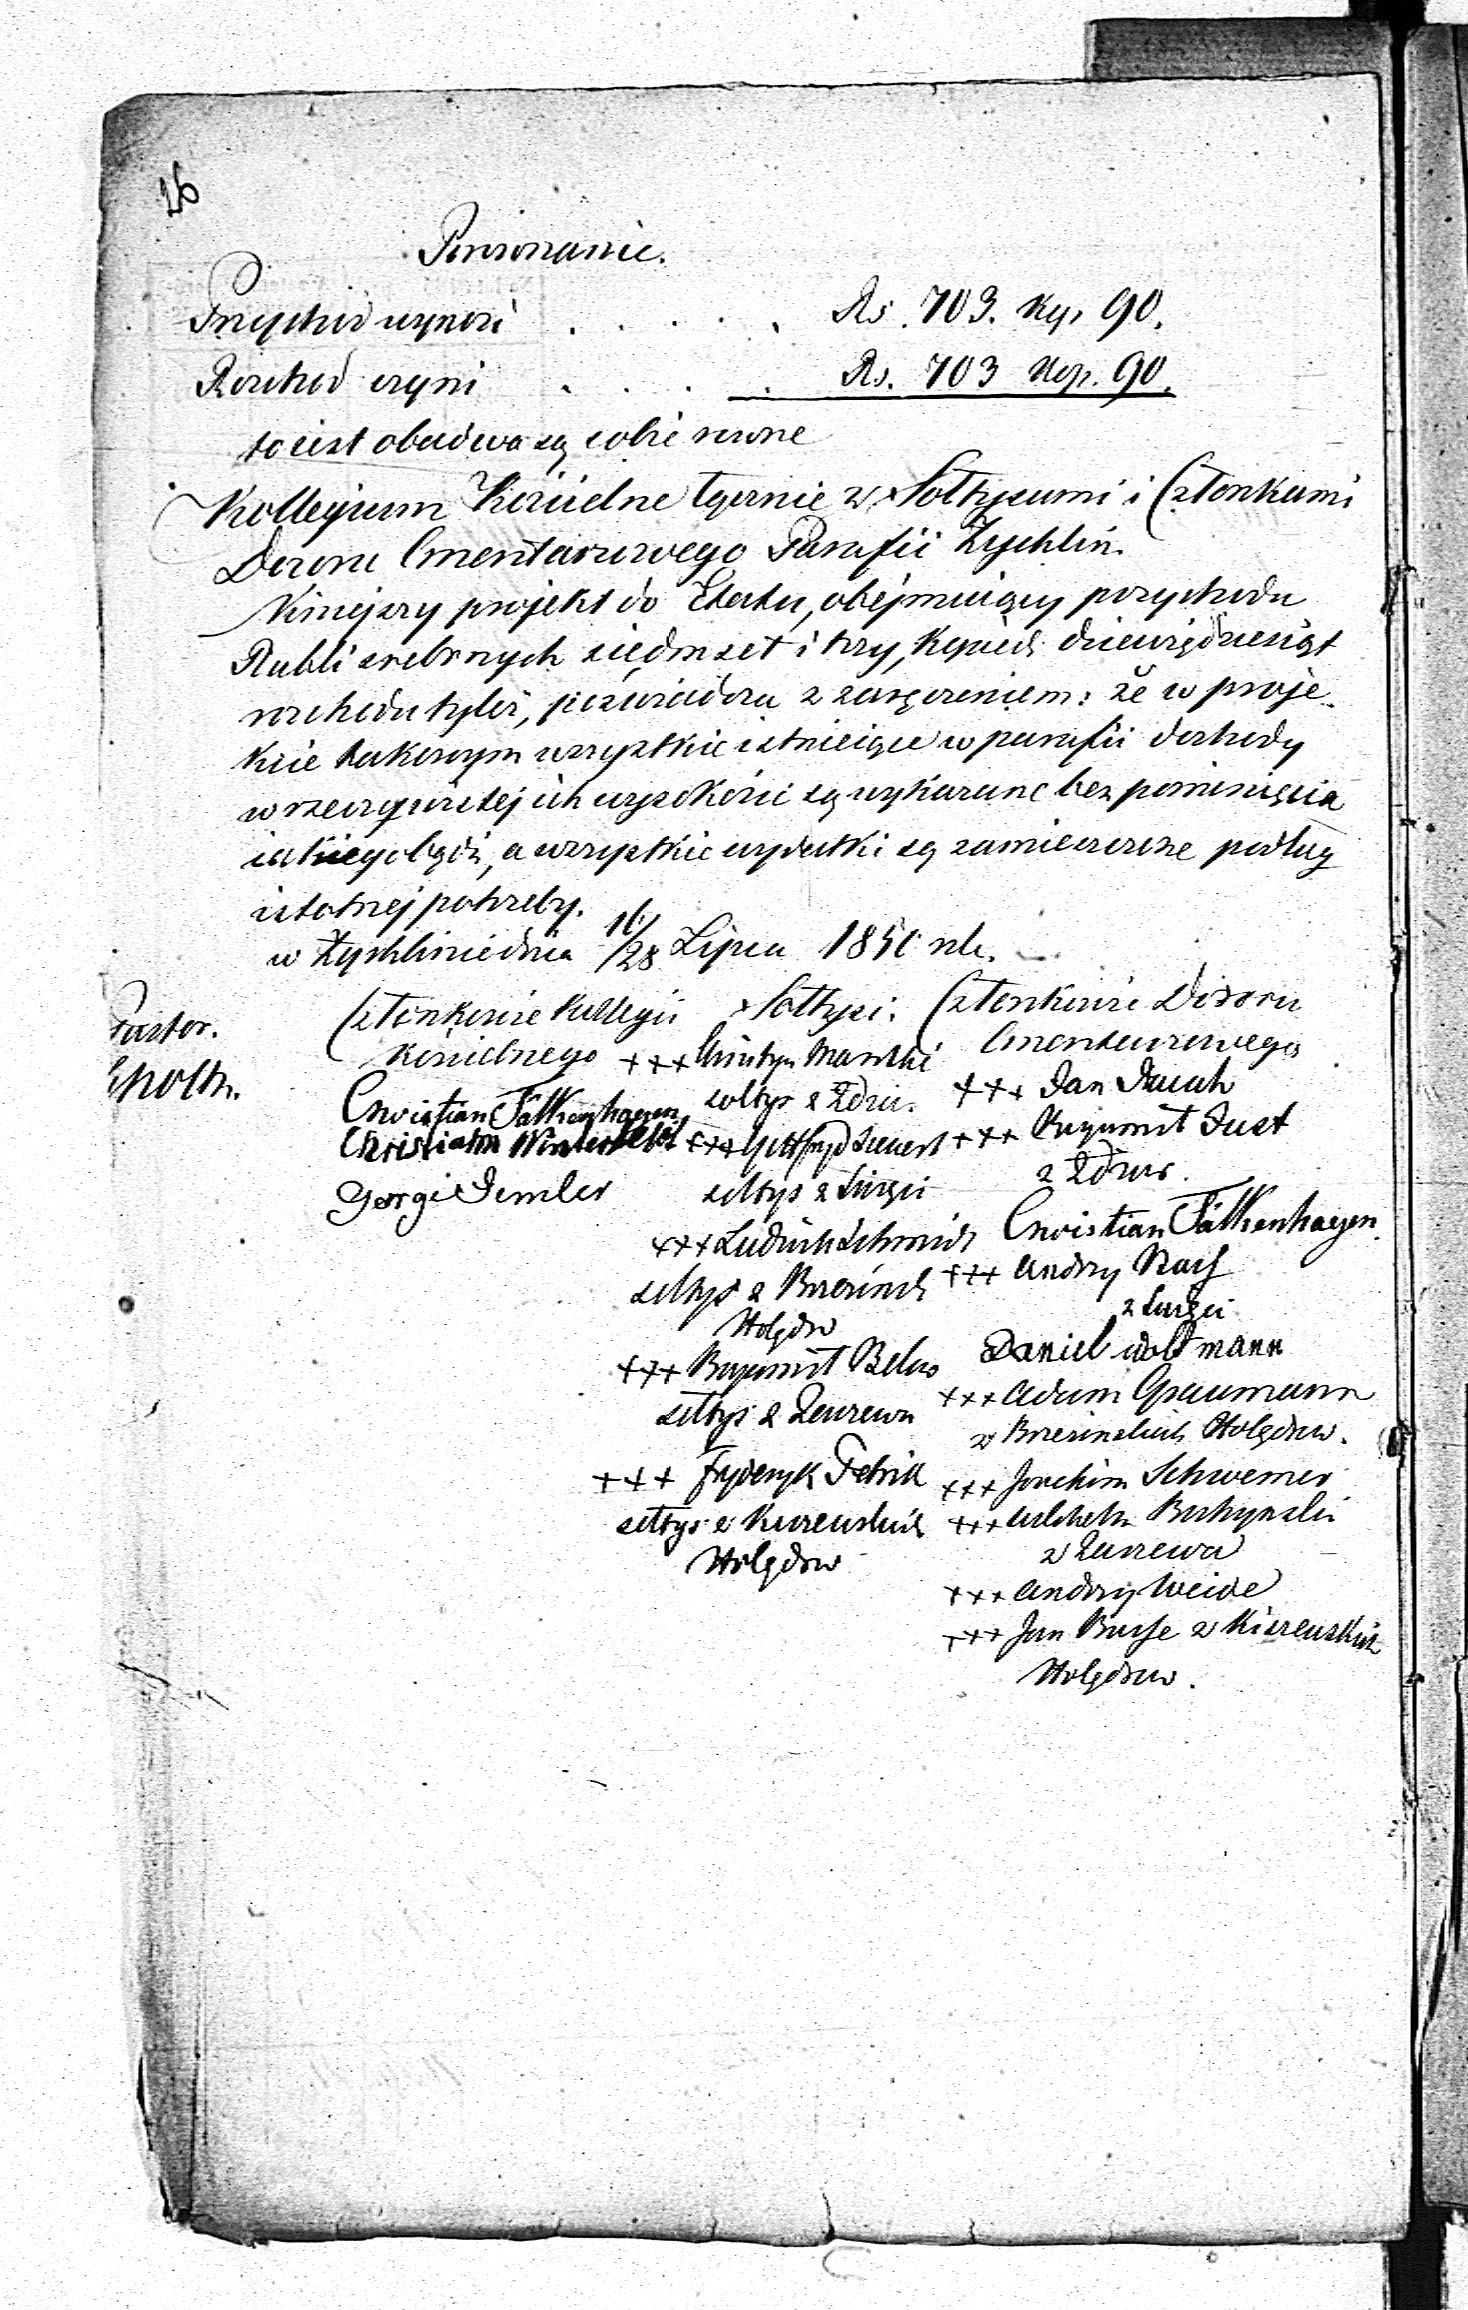 26
Porownanie.
Przychod wynosi . . . . . Rs. 703. Kop. 90.
Rozchod czyni . . . . Rs. 703 Kop. 90.
to iest obadwa są sobie rowne
Kollegium Kościelne łącznie z Sołtysami i Członkami
Dozoru Cmentarzowego Parafii Zychlin.
Niniejszy projekt do Etatu, obejmuiący przychodu
Rubli srebrnych siedmset i trzy, Kopiejk dziewięćdziesiąt
rozchodu tyleż, poświadcza z zaręczeniem: że w proje-
kcie takowym wszystkie istnieiące w parafii dochody
w rzeczywistej ich wysokości są wykazane bez pominięcia
iakiegobądź, a wszystkie wydatki są zamieszczone podług
istotnej potrzeby.
w Zychlinie dnia 16/28 Lipca 185 rk.
Pastor.
Członkowie Kollegii
Kościelnego
Christian Fälkenhagen
Christian Winterfeld
George Demler
Sołtysi.
+++ Mantke
sołtys z Zdzar.
+++ Gottfryd
sołtys z
+++ Ludwik Schmidt
sołtys z Brzezinsk
Holędrow
+++ Bogumił
sołtys z
+++ Fryderyk Petrik
sołtys z
Holędrow
Członkowie Dozoru
Cmentarzowego
+++ Jan
+++ Bogumił Just
z Zdzar.
Christian Fälkenhagen.
+++ Andrzy
z
Daniel Woltmann
+++ Adam Graumann
z Brzezinskich Holędrow.
+++ Joachim Schwemer
+++
z
+++ Andrzy Weide
+++ Jan Busse z
Holędrow.